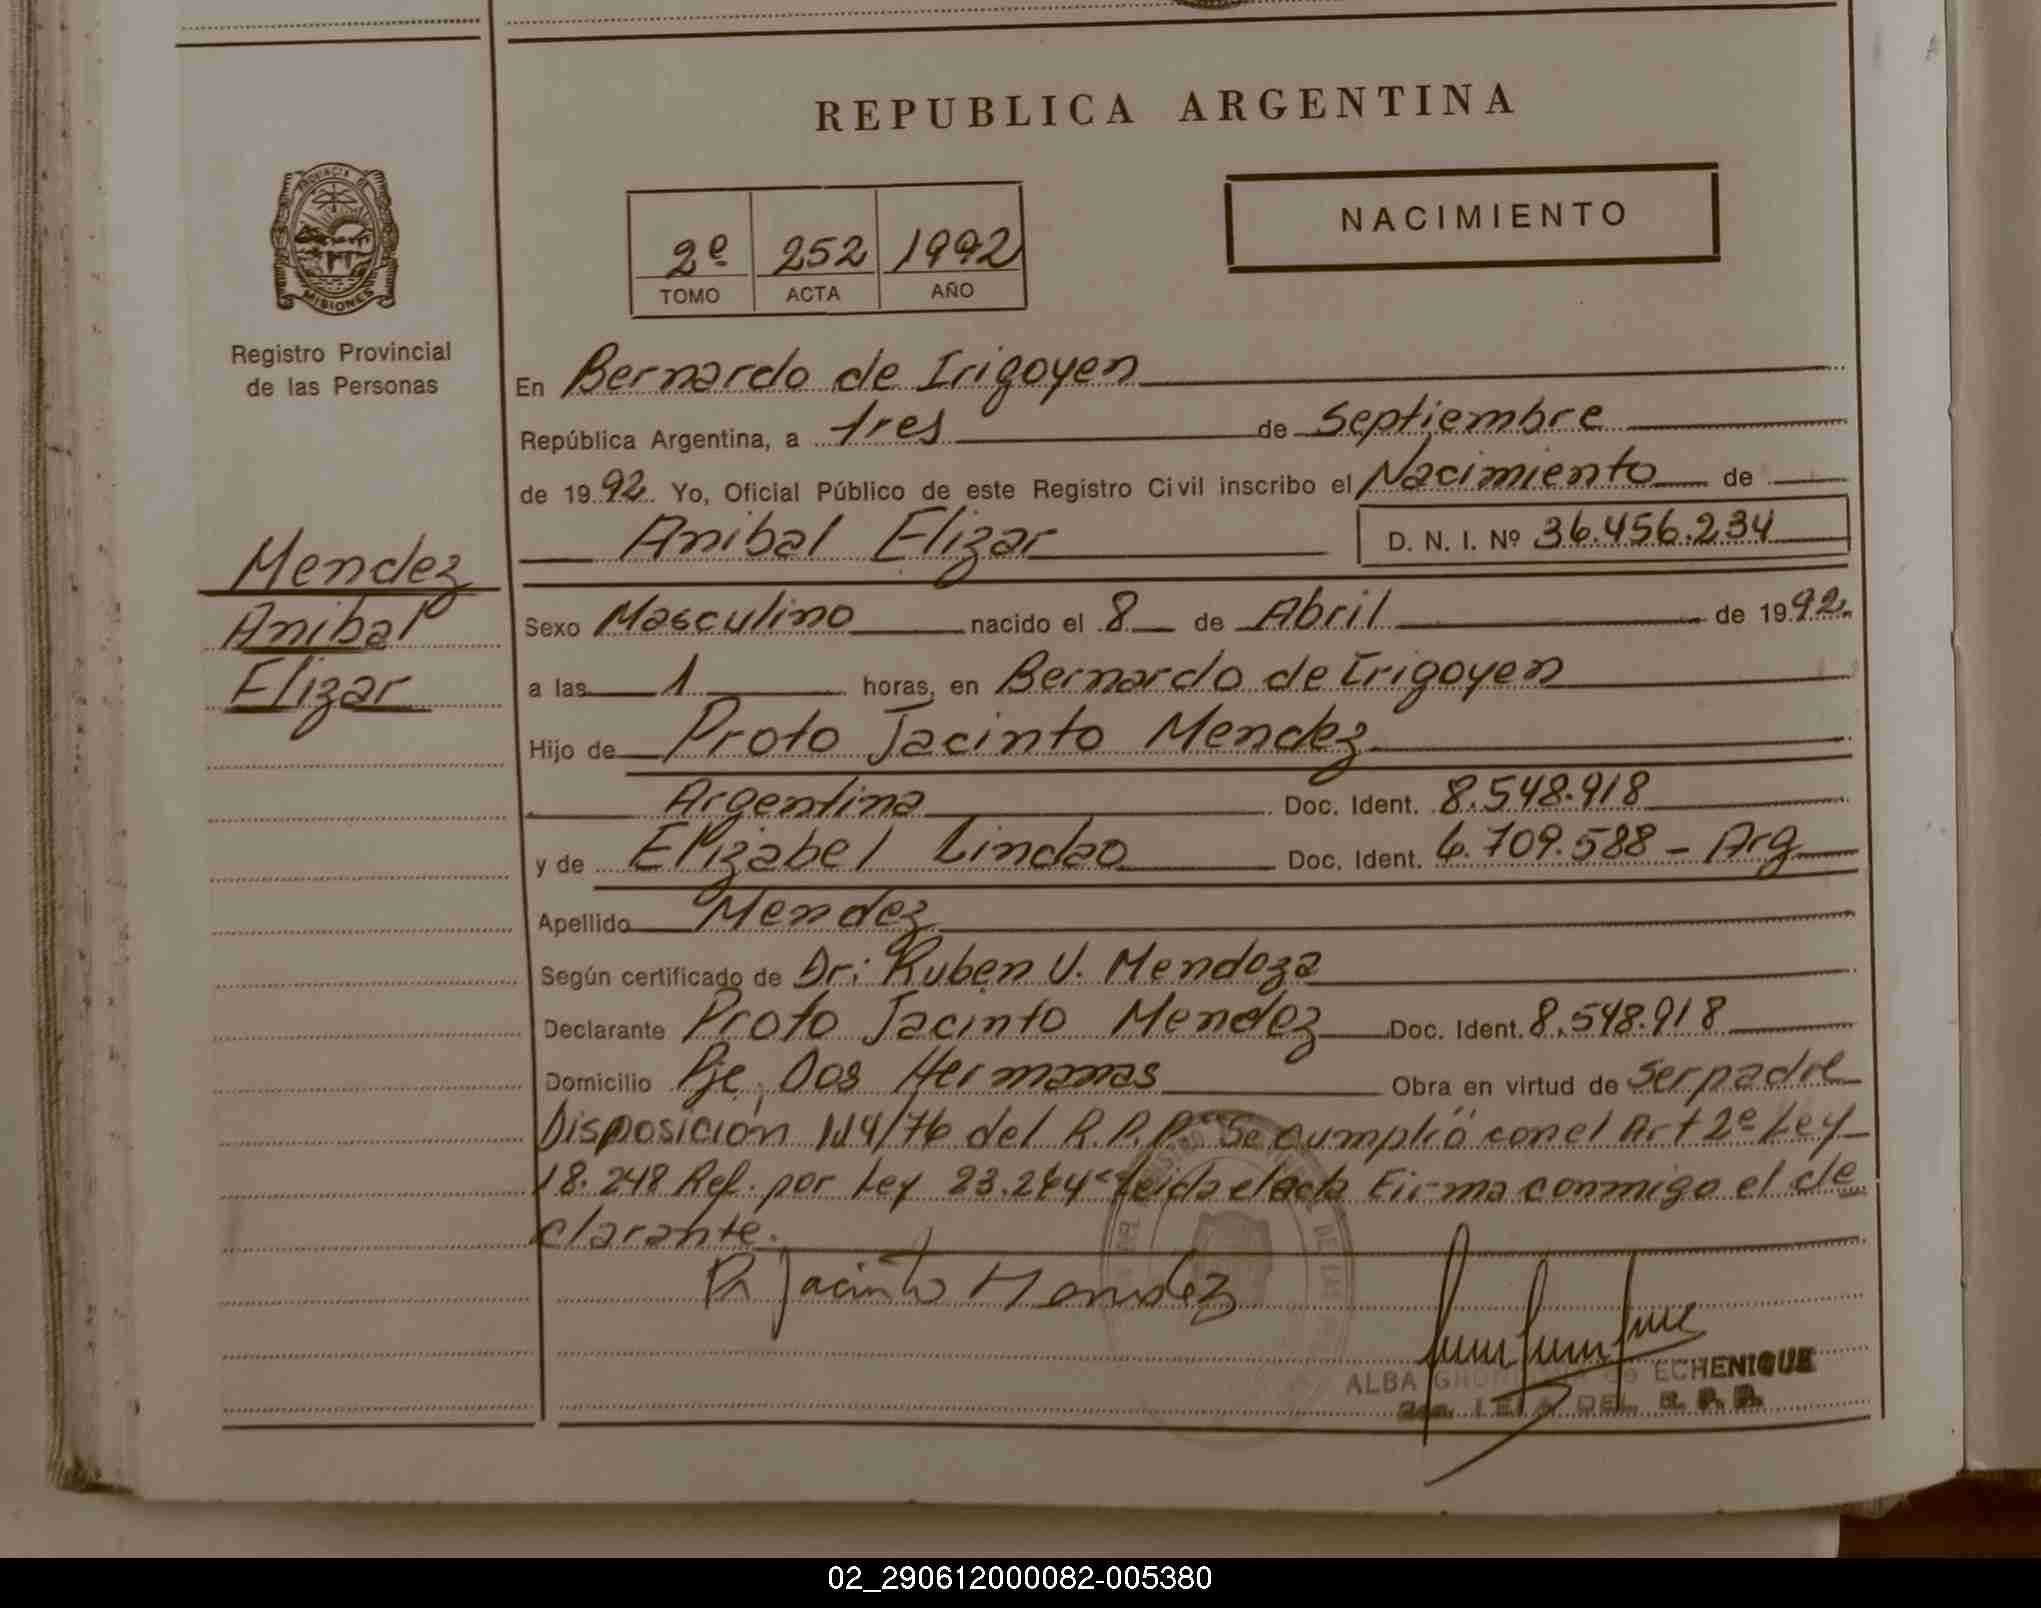 REPUBLICA ARGENTINA
PROVINCIA DE
MISIONES
Registro Provincial
de las Personas
NACIMIENTO
2º 252 1992
TOMO ACTA AÑO
En Bernardo de Irigoyen
República Argentina, a tres de Septiembre
de 1992 Yo, Oficial Público de este Registro Civil inscribo el Nacimiento de
Anibal Elizar D. N. I. Nº 36.456.234
Mendez
Anibal
Elizar
Sexo Masculino nacido el 8 de Abril de 1992.
a las 1 horas, en Bernardo de Irigoyen
Hijo de Proto Jacinto Mendez
Argentina Doc. Ident. 8.548.918
y de Elizabel Lindao Doc. Ident. 6.709.588 - Arg
Apellido Mendez
Según certificado de Dr: Ruben V. Mendoza
Declarante Proto Jacinto Mendez Doc. Ident. 8.548.918
Domicilio Pje. Dos Hermanas Obra en virtud de ser padre
Disposición 114/76 del R.P.P. "Se cumplió con el Art 2º Ley
18.248 Ref. por Ley 23.264" Leida el acta Firma conmigo el de
clarante.
P. Jacinto Mendez
ALBA de ECHENIQUE
DEL R. P. P.
02_290612000082-005380